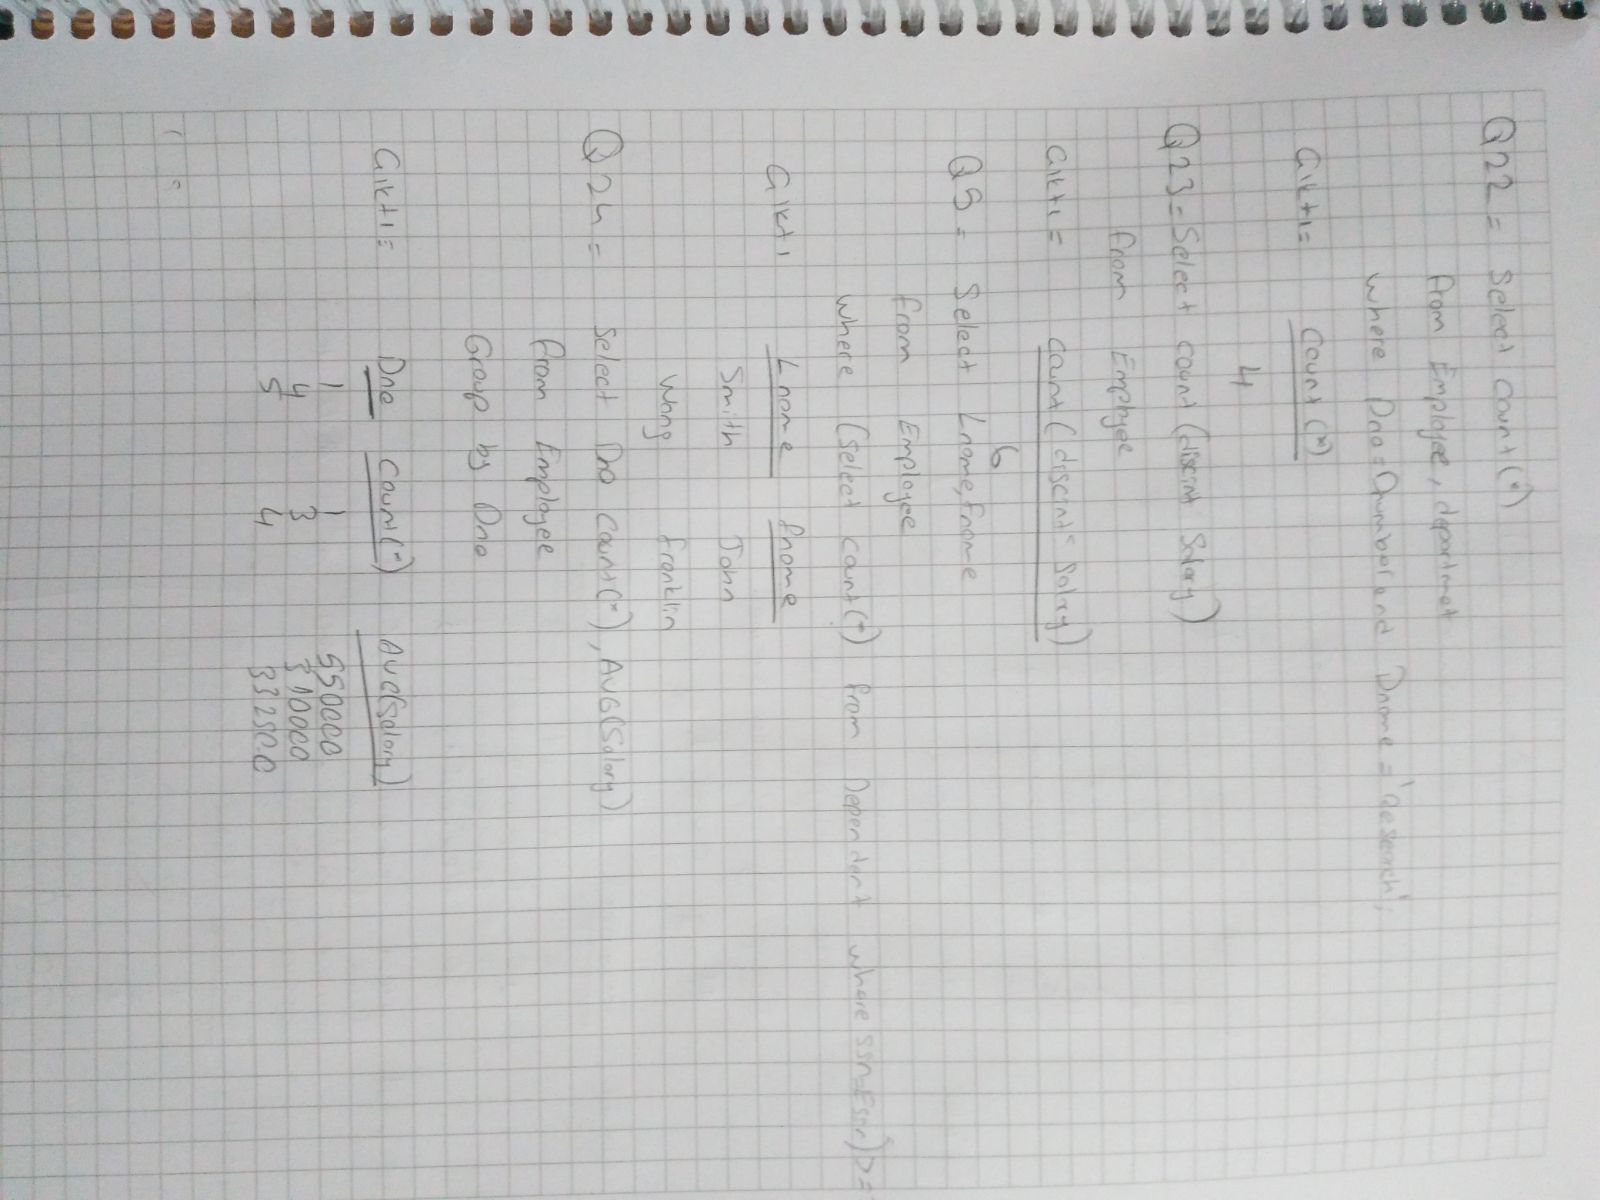 Q22 = Select count(*)
from Employee, departmet
where Dno=Dnumber and Dname = 'research';
Gıktı = Count(*)
4
Q23 = Select count (discint Salary)
from Employee
Gıktı = count(discint Salary)
6
Q5 = Select Lname, Fname
from Employee
where (select count(*) from Dependant where ssn=Essn)>=
Gıktı Lname fname
Smith John
Wong franklin
Q24 = Select Dno count(*), AVG(Salary)
from Employee
Group by Dno
Gıktı = Dno Count(*) AVG(Salary)
1 1 550000
4 3 310000
5 4 332500